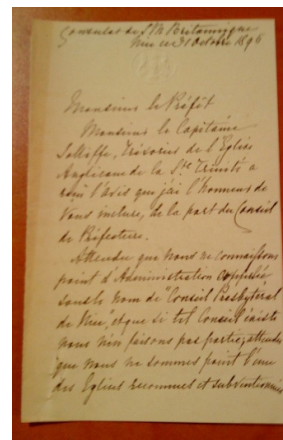 Consulat de S. M. Britannique
Nice ce 31 Octobre 1896
Monsieur le Préfet
Monsieur le Capitaine
Trésorier de l'Eglise
Anglicane de la Ste Trinité a
reçu l'avis que j'ai l'honneur de
vous inclure, de la part du Conseil
de Préfecture.
Attendu que nous ne connaissons
point d'Administration appelée
sous le nom de "Conseil Presbytéral
de Nice", et que si tel Conseil existe
nous n'en faisons pas partie; attendu
que nous ne sommes point l'une
des Eglises reconnues et subventionnées